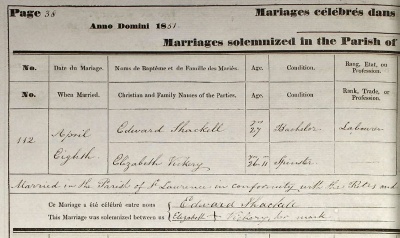 Page 38
Mariages célébrés dans
Anno Domini 1851.
Marriages solemnized in the Parish of
No. Date du Mariage. Noms de Baptême et de Famille des Mariés. Age. Condition. Rang, Etat, ou Profession.
No. When Married. Christian and Family Names of the Parties. Age. Condition Rank, Trade, or Profession.
112 April Edward Shackell 27 Bachelor Labourer
Eighth Elizabeth Vickery 26 Spinster
Married in the Parish of St Lawrence in conformity with the Rites and
Ce Mariage a été célébré entre nous Edward Shackell
This Marriage was solemnized between us Elizabeth + Vickery, her mark